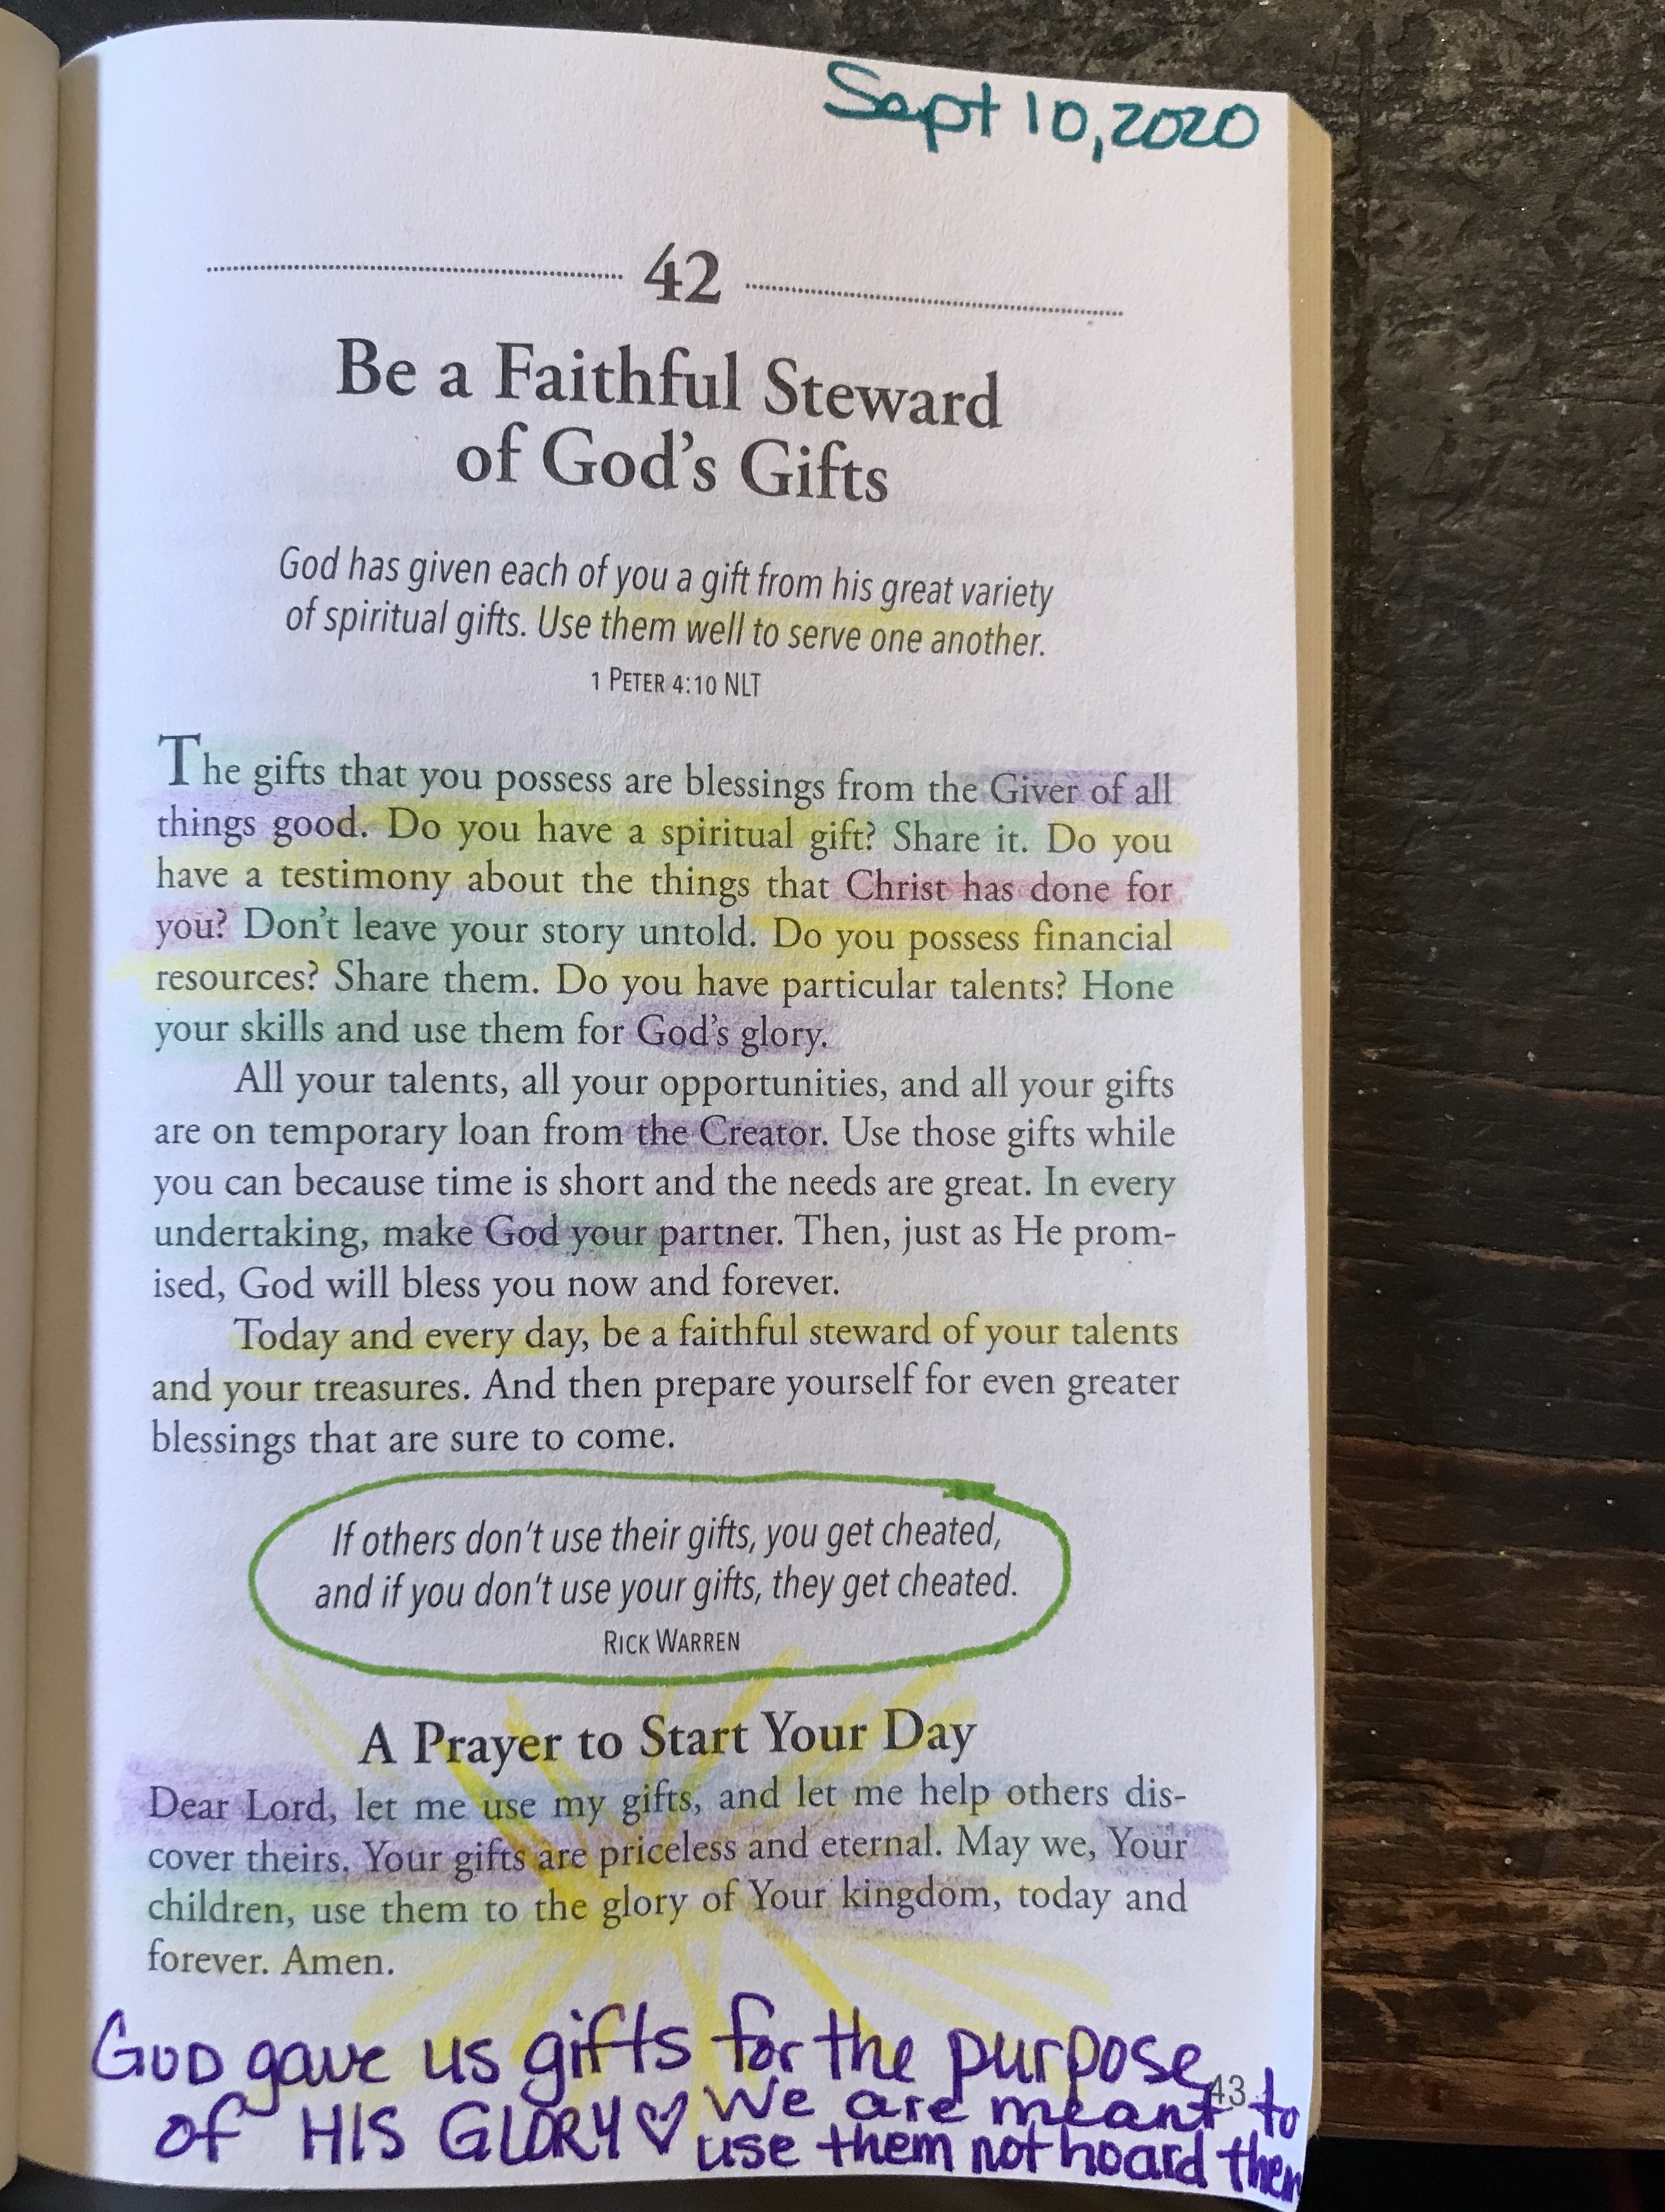 Sept 10, 2020
42
Be a Faithful Steward
of God's Gifts
God has given each of you a gift from his great variety
of spiritual gifts. Use them well to serve one another.
1 PETER 4:10 NLT
The gifts that you possess are blessings from the Giver of all
things good. Do you have a spiritual gift? Share it. Do you
have a testimony about the things that Christ has done for
you? Don't leave your story untold. Do you possess financial
resources? Share them. Do you have particular talents? Hone
your skills and use them for God's glory.
All your talents, all your opportunities, and all your gifts
are on temporary loan from the Creator. Use those gifts while
you can because time is short and the needs are great. In every
undertaking, make God your partner. Then, just as He prom-
ised, God will bless you now and forever.
Today and every day, be a faithful steward of your talents
and your treasures. And then prepare yourself for even greater
blessings that are sure to come.
If others don't use their gifts, you get cheated,
and if you don't use your gifts, they get cheated.
RICK WARREN
A Prayer to Start Your Day
Dear Lord, let me use my gifts, and let me help others dis-
cover theirs. Your gifts are priceless and eternal. May we, Your
children, use them to the glory of Your kingdom, today and
forever. Amen.
GOD gave us gifts for the purpose
of HIS GLORY ♡ We are meant to
use them not hoard them
43